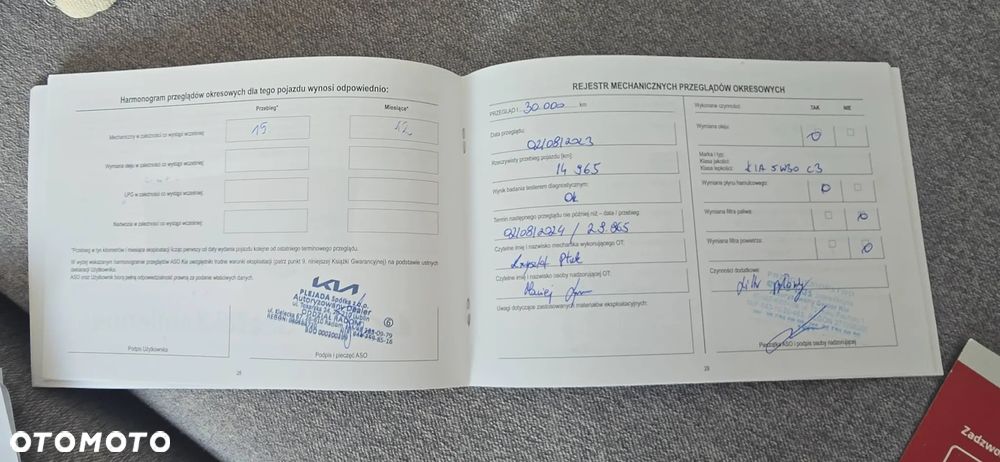 Harmonogram przeglądów okresowych dla tego pojazdu wynosi odpowiednio:
Przebieg*
Miesiące*
Mechaniczny w zależności co wystąpi wcześniej:
15
12
Wymiana oleju w zależności co wystąpi wcześniej:
LPG w zależności co wystąpi wcześniej:
Nadwozie w zależności co wystąpi wcześniej:
*Przebieg w tys. kilometrów i miesiące eksploatacji licząc pierwszy od daty wydania pojazdu kolejne od ostatniego terminowego przeglądu.
W wyżej wskazanym harmonogramie przeglądów ASO Kia uwzględniło trudne warunki eksploatacji (patrz punkt 9. niniejszej Książki Gwarancyjnej) na podstawie ustnych
deklaracji Użytkownika.
ASO oraz Użytkownik biorą pełną odpowiedzialność prawną za podanie właściwych danych.
KIA
PLEJADA Spółka z o.o.
Autoryzowany Dealer
ODDZIAŁ RADOM
6
Podpis Użytkownika
Podpis i pieczęć ASO
28
REJESTR MECHANICZNYCH PRZEGLĄDÓW OKRESOWYCH
PRZEGLĄD 30.000 km
Data przeglądu:
02/08/2023
Rzeczywisty przebieg pojazdu [km]:
14 965
Wynik badania testerem diagnostycznym:
Ok
Termin następnego przeglądu nie później niż – data / przebieg:
02/08/2024 / 29.965
Czytelne imię i nazwisko mechanika wykonującego OT:
Krzysztof Ptak
Czytelne imię i nazwisko osoby nadzorującej OT:
Maciej
Uwagi dotyczące zastosowanych materiałów eksploatacyjnych:
Wykonane czynności:
TAK
NIE
Wymiana oleju:
Marka i typ:
Klasa jakości:
Klasa lepkości:
KIA 5W30 C3
Wymiana płynu hamulcowego:
Wymiana filtra paliwa:
Wymiana filtra powietrza:
Czynności dodatkowe:
filtr pyłkowy
Pieczątka ASO i podpis osoby nadzorującej
29
Zadzwo
OTOMOTO